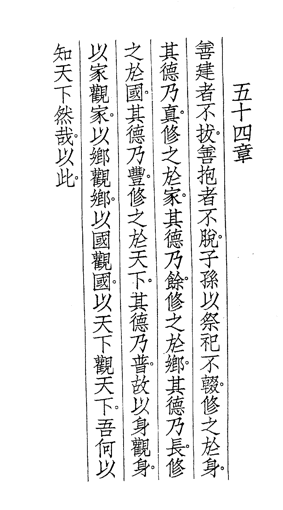 五十四章
善建者不拔。善抱者不脫。子孫以祭祀不輟。修之於身。
其德乃真。修之於家。其德乃餘。修之於鄉。其德乃長。修
之於國。其德乃豐。修之於天下。其德乃普。故以身觀身。
以家觀家。以鄉觀鄉。以國觀國。以天下觀天下。吾何以
知天下然哉。以此。